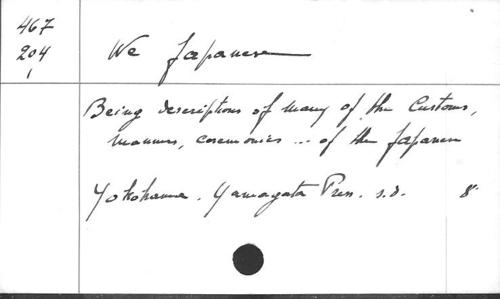 467
204
1
We Japanese
Being descriptions of many of the Customs,
manners, ceremonies ... of the Japanese
Yokohama. Yamagata Press. s.d. 8°